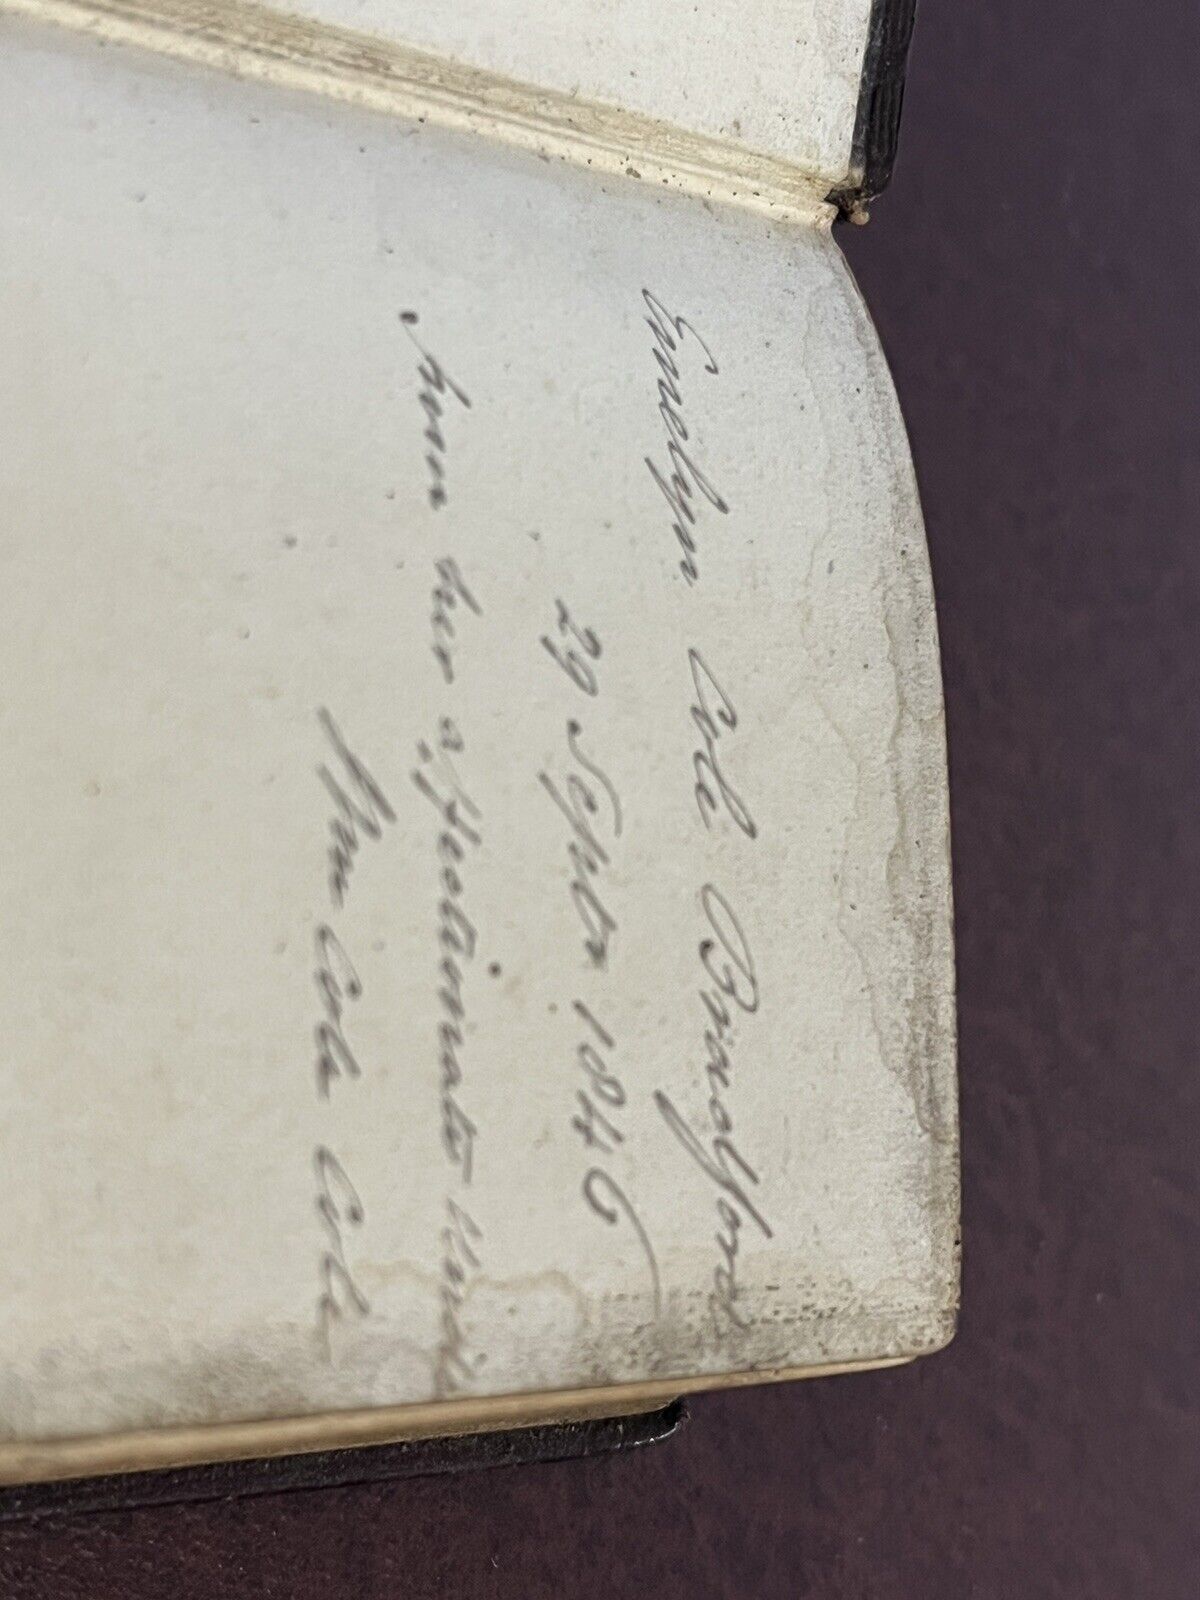 Emelyn Cole Bradford
29 Septbr 1846
from her affectionate Uncle
Wm Cole Cole